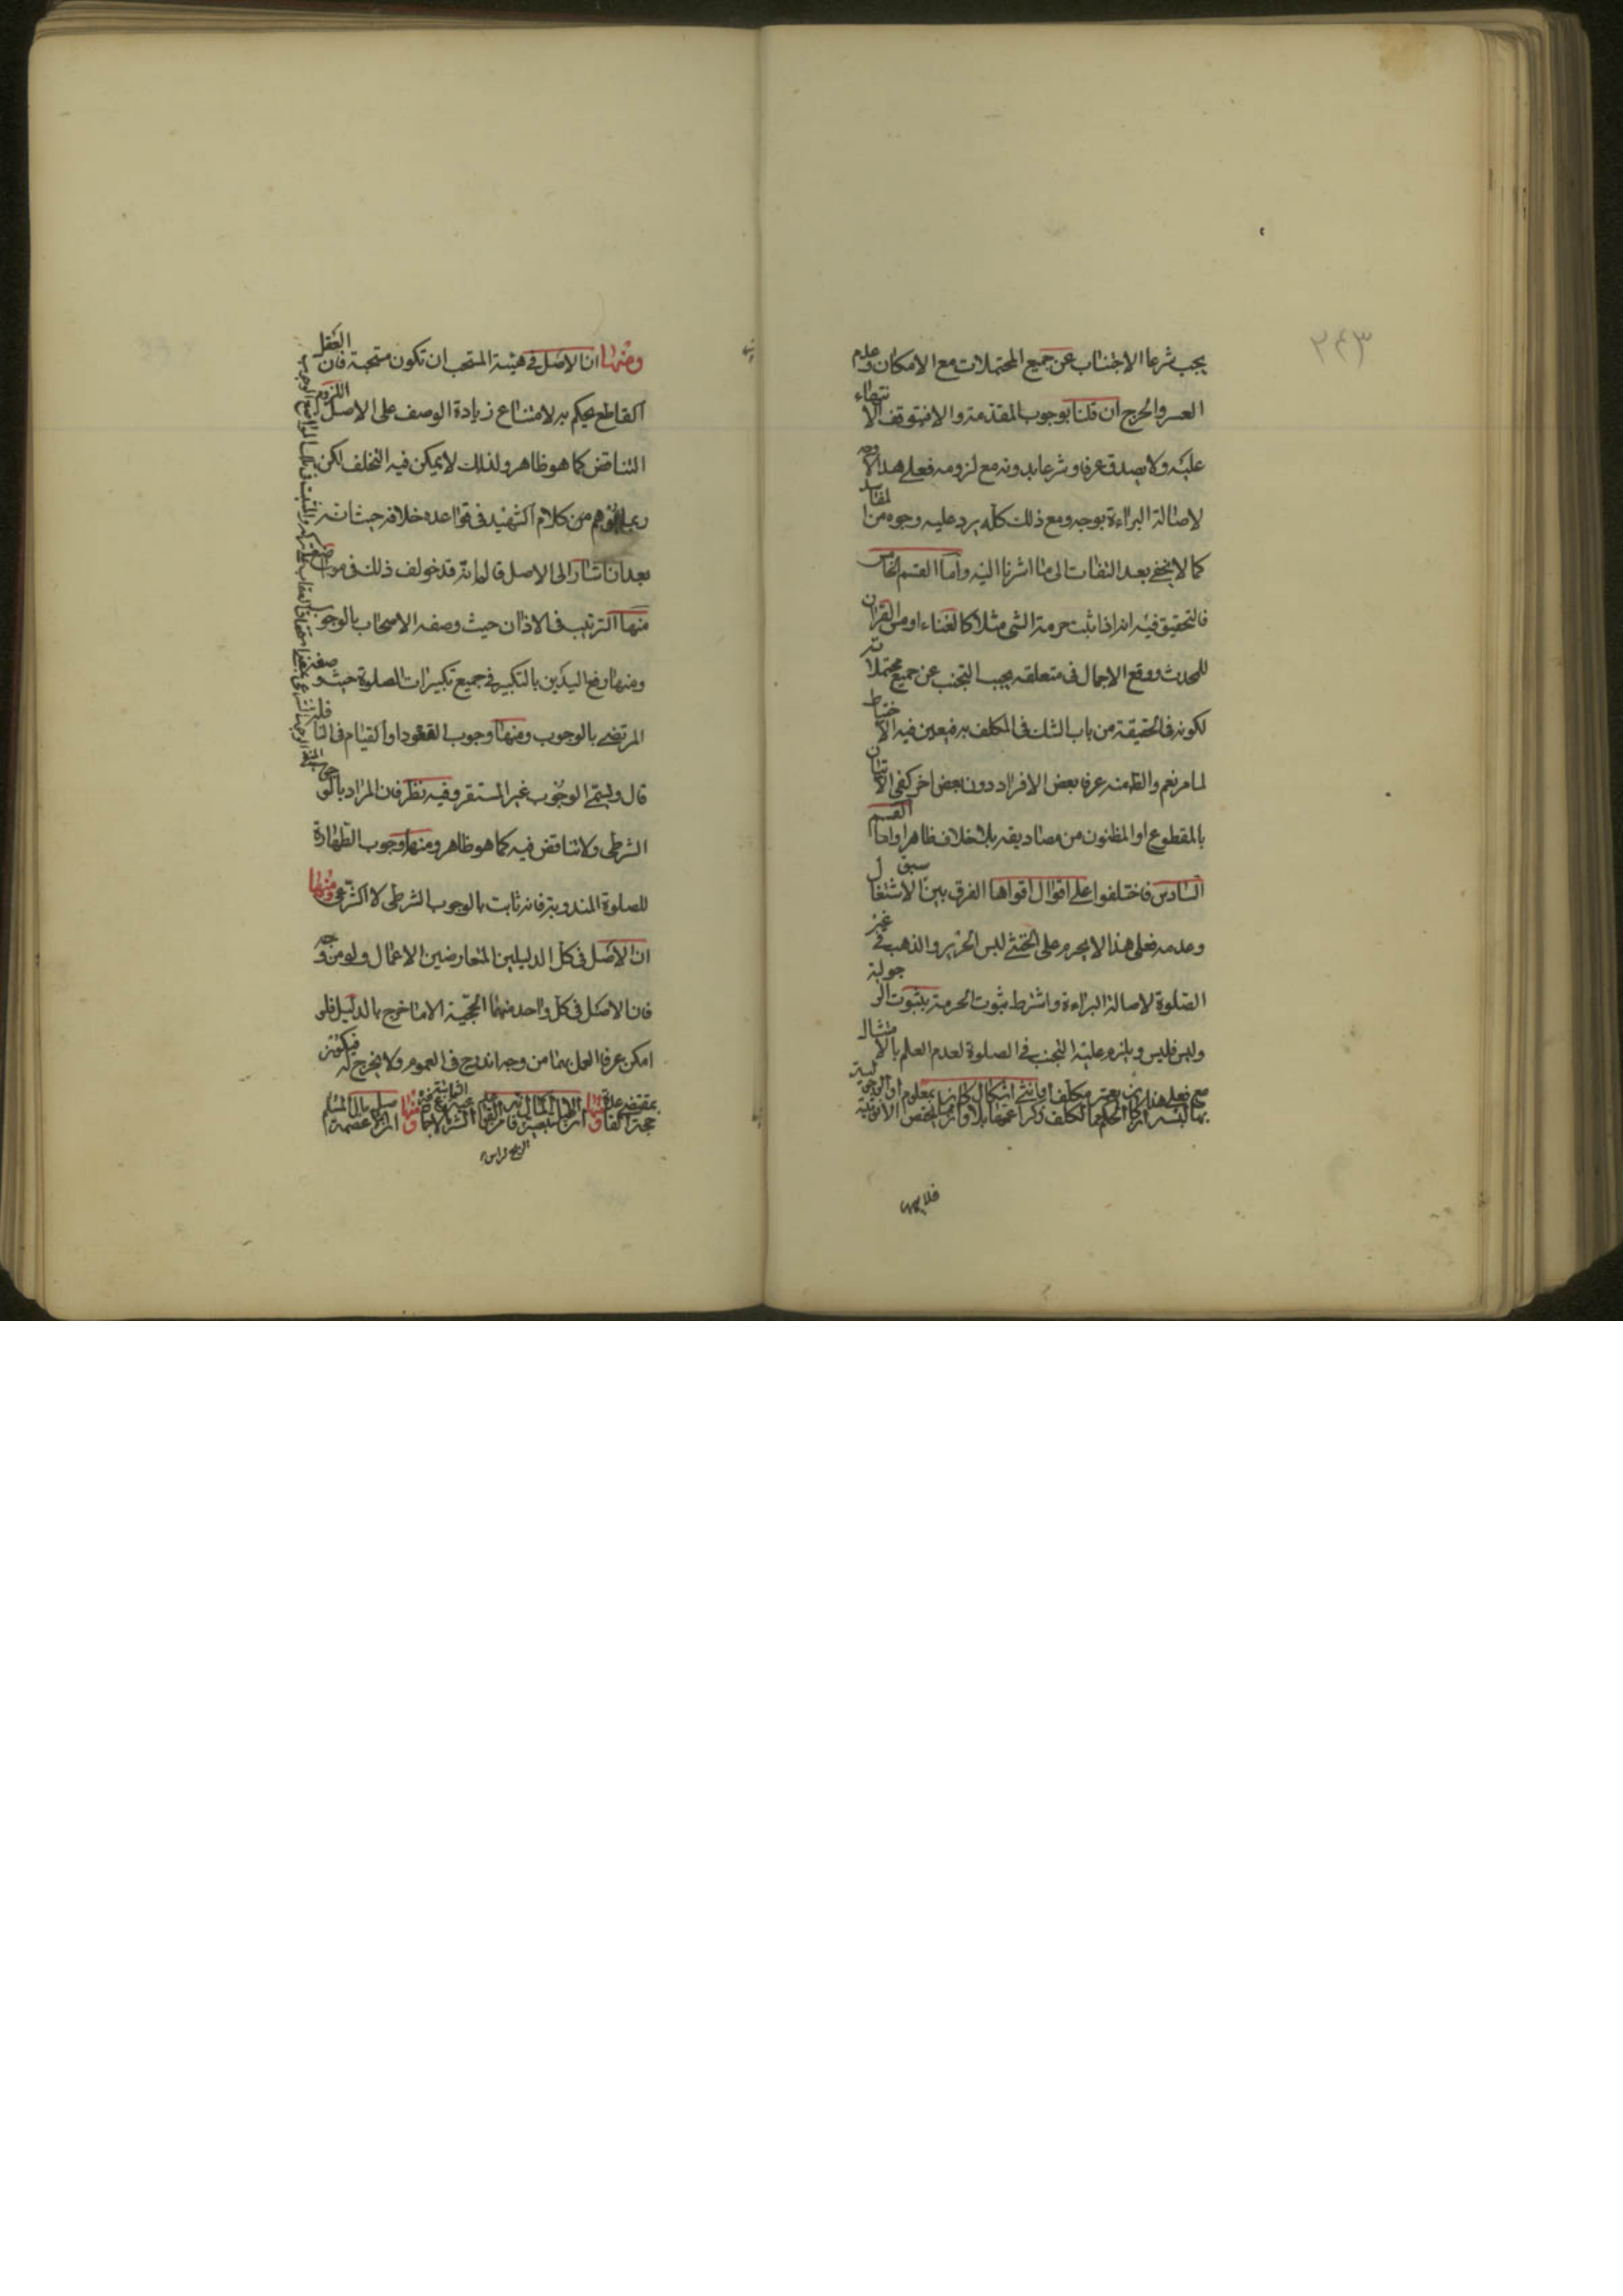 ٢٤٣
يجب شرعا الاجتناب عن جميع المحتملات مع الامكان وعدم
العسر والحرج ان قلنا بوجوب المقدمة والا فتوقف الانتهاء
عليه ولا يصدق عرفا وشرعا بدونه مع لزومه فعلى هذا لا وجه
لاصالة البراءة بوجه ومع ذلك كله يرد عليه وجوه من المفاسد
كما لا يخفى بعد التفات الى ما اشرنا اليه واما القسم الخامس
فالتحقيق فيه انه اذا ثبت حرمة الشئ مثلا كالغناء او مس القران
للمحدث ووقع الاجمال فى متعلقه يجب التجنب عن جميع محتملاته
لكونه فى الحقيقة من باب الشك فى المكلف به فيعين فيه الاحتياط
لما مر نعم والقائه عرفا بعض الافراد دون بعض اخر كفى الاتيان
بالمقطوع او المظنون من مصاديقه بلا خلاف ظاهرا واما القسم
السادس فاختلفوا على اقوال اقواها الفرق بين سبق الاشتغال
وعدمه فعلى هذا لا يحرم على الخنثى لبس الحرير والذهب فى غير
الصلوة لاصالة البراءة واشتراط ثبوت الحرمة بثبوت الرجولية
وليس فليس ويلزم عليه التجنب فى الصلوة لعدم العلم بالامتثال
فلا يم
ومنها ان الاصل فى هيئة المستحب ان تكون مستحبة فان العقل
القاطع يحكم به لامتناع زيادة الوصف على الاصل للزوم
التناقض كما هو ظاهر ولذلك لا يمكن فيه التخلف لكن
ربما يتوهم من كلام الشهيد فى قواعده خلافه حيث انه
بعد ان اشار الى الاصل قال انه قد خولف ذلك فى مواضع
منها الترتيب فى الاذان حيث وصفه الاصحاب بالوجوب
ومنها رفع اليدين بالتكبير فى جميع تكبيرات الصلوة حيث وصفه
المرتضى بالوجوب ومنها وجوب القعود او القيام فى النافلة
قال ويسمى الوجوب غير المستقر وفيه نظر فان المراد بالوجوب
الشرطى ولا تناقض فيه كما هو ظاهر ومنها وجوب الطهارة
للصلوة المندوبة فانه ثابت بالوجوب الشرطى لا الشرعى ومنها
ان الاصل فى كل الدليلين المتعارضين الاعمال ولو من وجه
فان الاصل فى كل واحد منهما الحجية الا ما خرج بالدليل فلو
امكن عرفا العمل بهما من وجه اندرج فى العموم ولا يخرج له فيكون